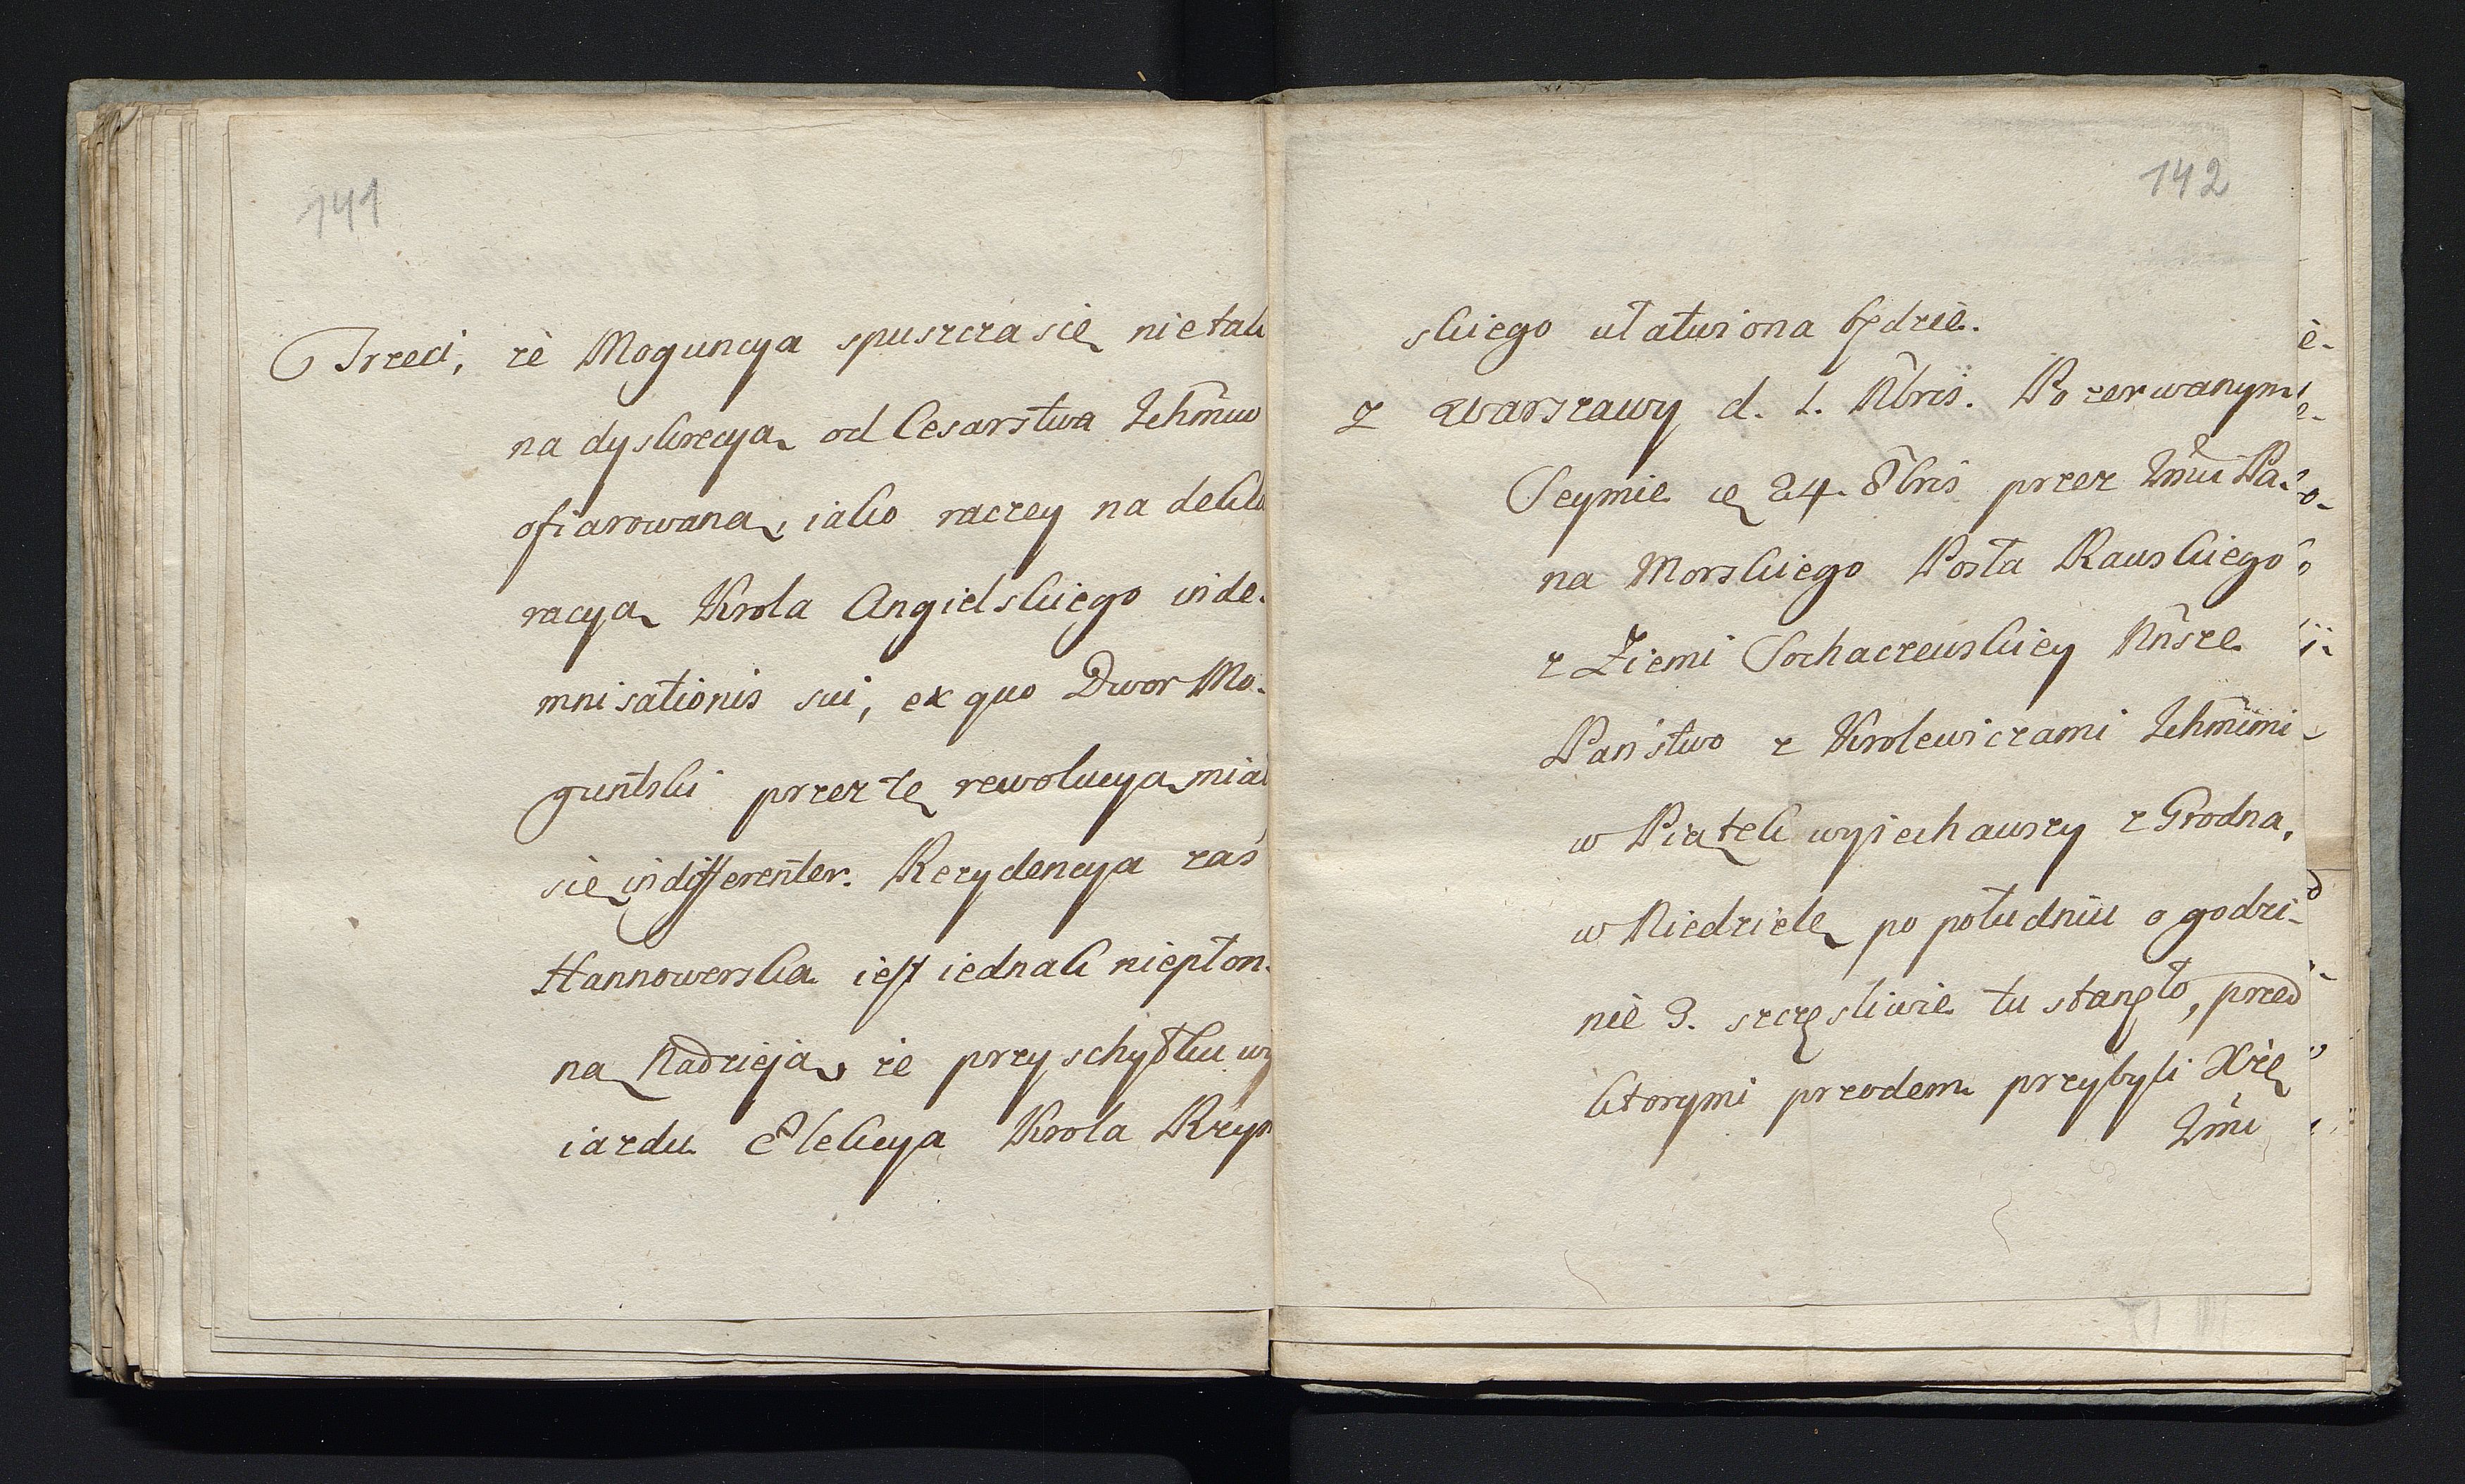 141
Trzeci, że Moguncya spuszcza się nie tak
na dyskrecyą od Cesarstwa Ichmuw
ofiarowaną, iako raczey na dekla
racyą Krola Angielskiego inde-
mnisationis sui, ex quo Dwor Mo-
guntski przez tę rewolucyą miał
się indifferenter. Rezydencya zaś
Hannowerska iest iednak niepłon-
ną Nadzieją, że przy schyłku wy
iazdu Elekcya Krola Rzym
142
skiego ułatwiona będzie.
Z Warszawy d. 1. Nbris. Po zerwanym
Seymie ię 24. 8bris przez Jmu Pa-
na Morskiego Posła Rawskiego
z Ziemi Sochaczewskiey Nńsze
Państwo z Krolewiczami Ichmími
w Piątek wyiechawszy z Grodna,
w Niedzielę po południu o godzi-
nie 3. szczęsliwie tu stanęło, przed
ktorymi przodem przybyli Xżę
Jmu